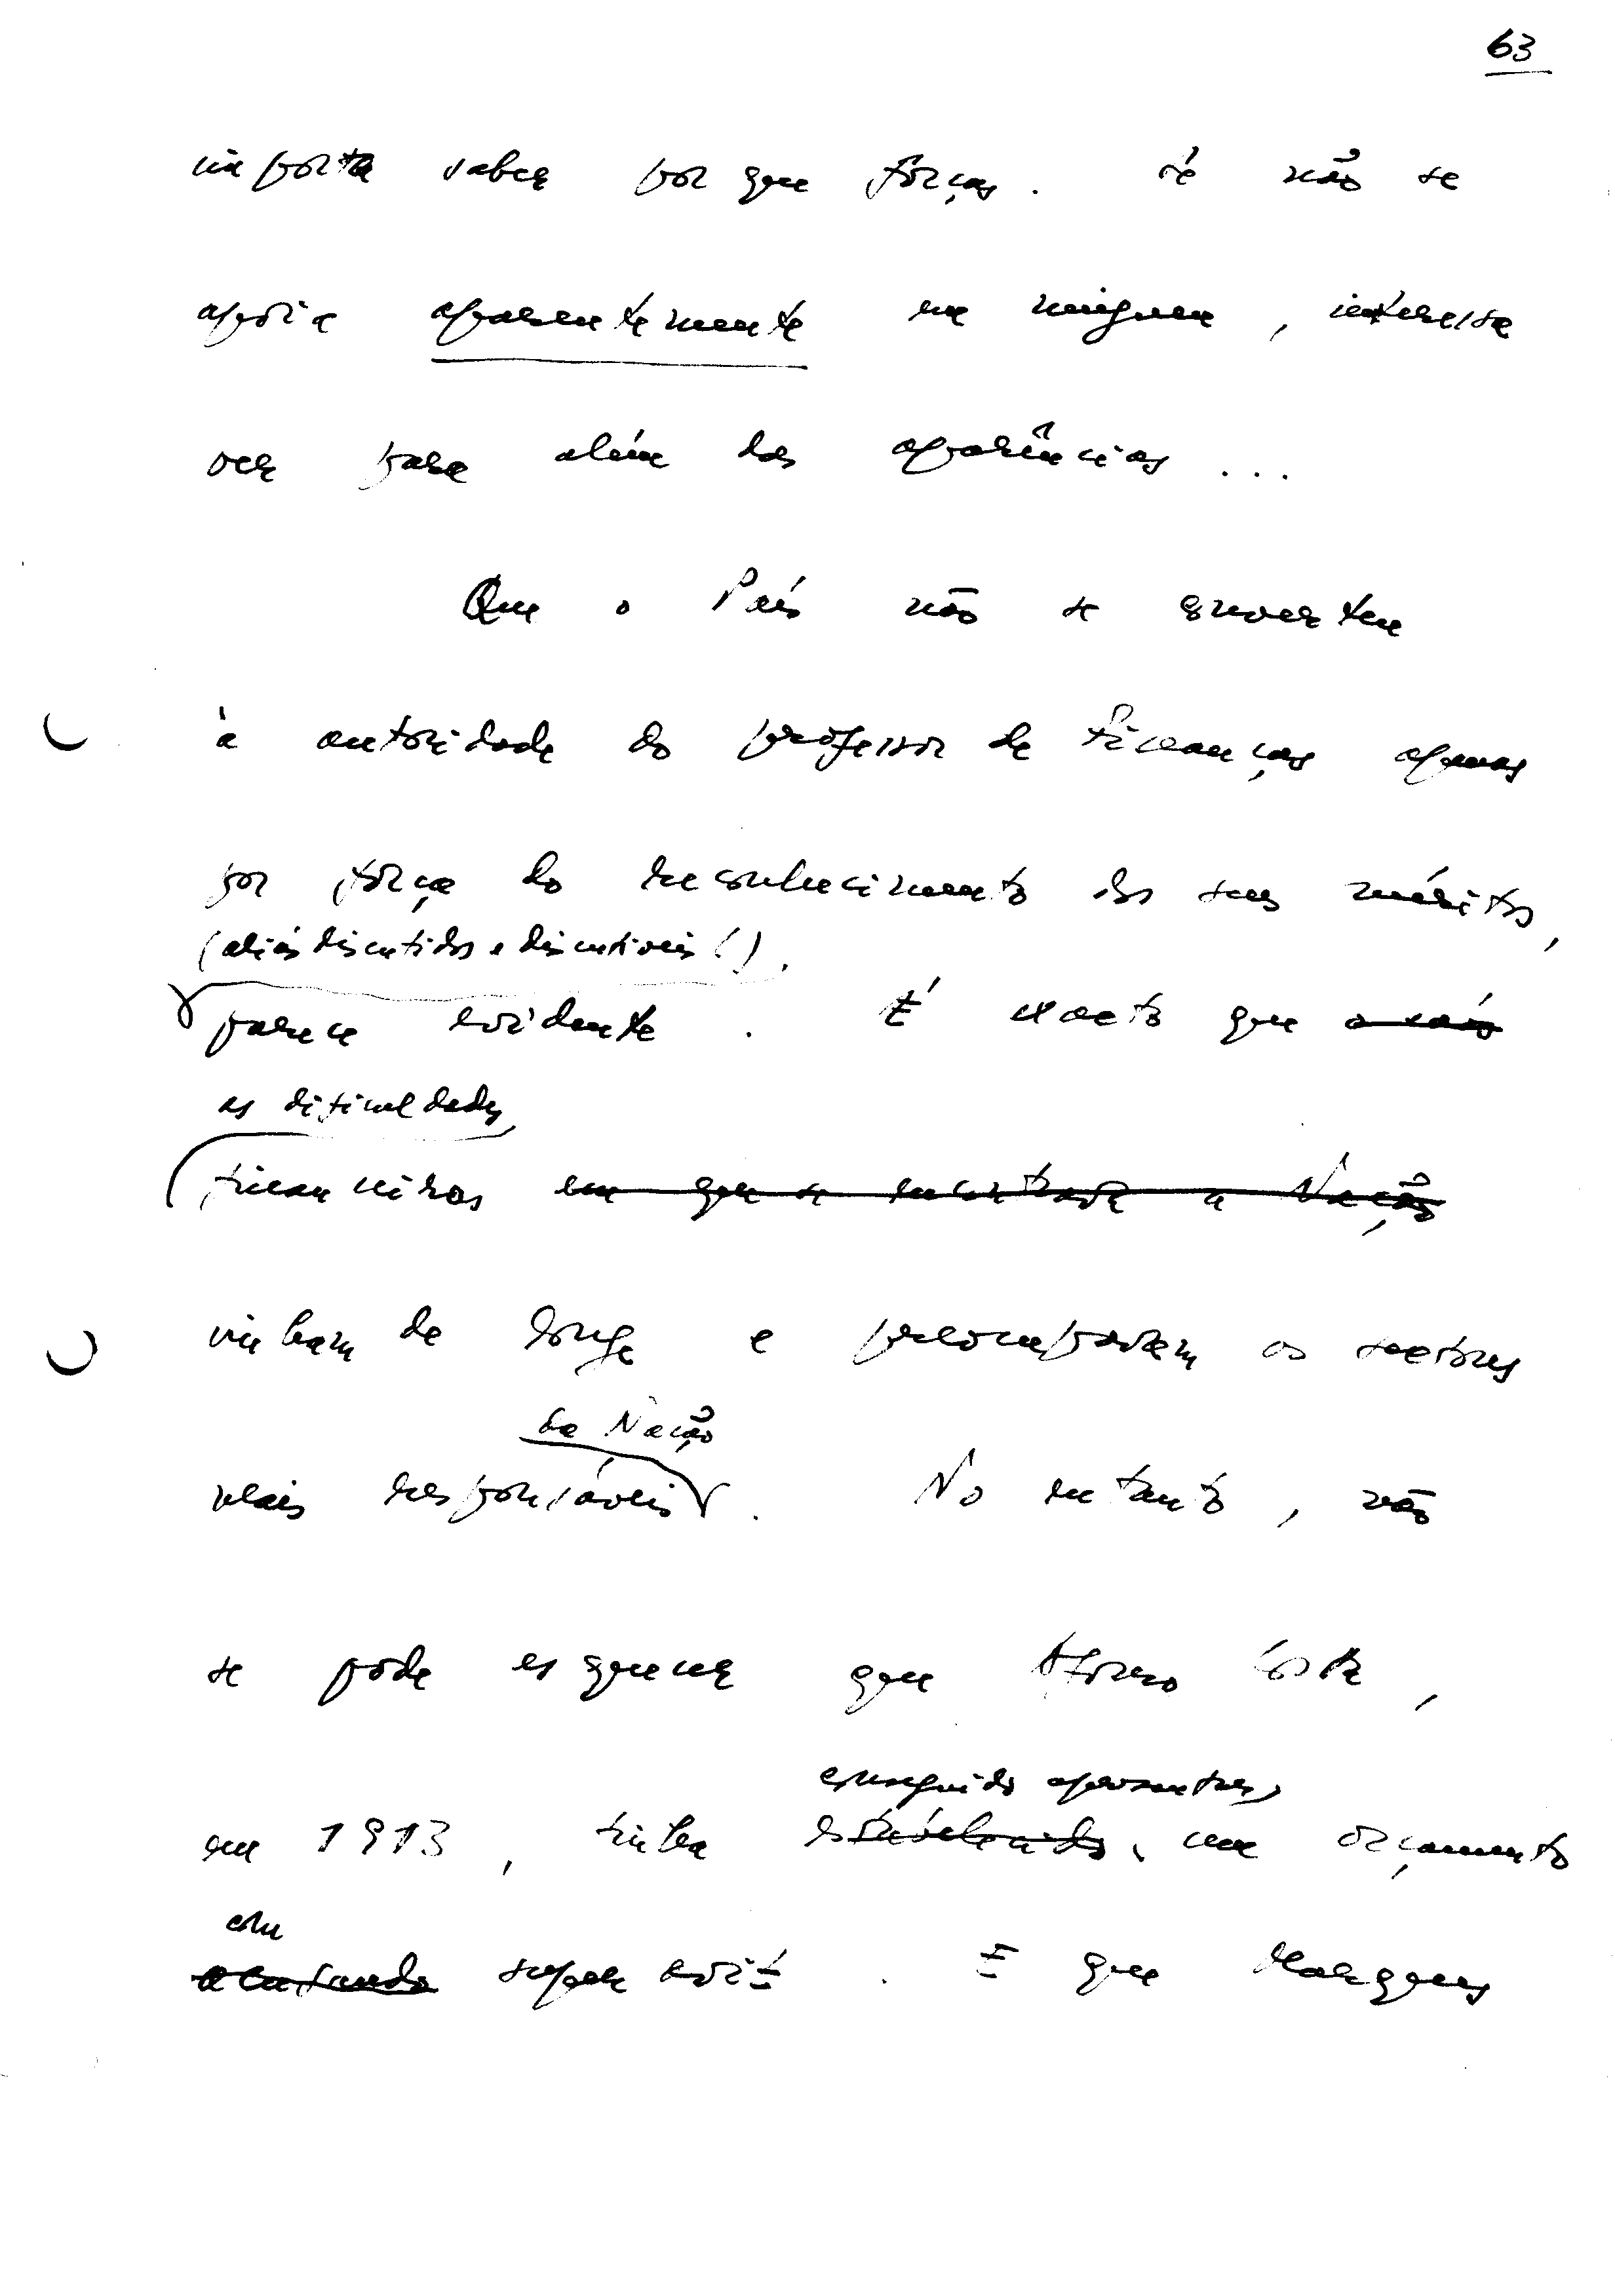 63
importa saber por que forças. Se não se
apoia aparentemente em ninguem, interessa
ver para além das aparências...
Que o País não se
à autoridade do professor de Finanças apenas
por força do reconhecimento dos seus méritos,
(aliás discutidos e discutiveis!).
parece evidente. É exacto que
as dificuldades
financeiras em que se encontrava a Nação
vinham de longe e preocupavam os sectores
da Nação
mais responsáveis. No entanto, não
se pode esquecer que Afonso Costa,
conseguido apresentar,
em 1913, tinha estabelecido um orçamento
com
acusando superavit. E que Marques